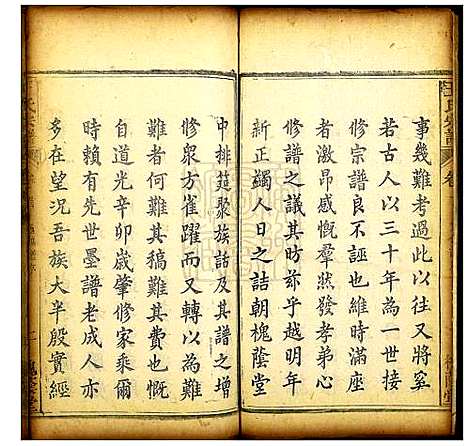 事幾難考過此以往又將奚
若古人以三十年為一世接
修宗譜良不誣也維時滿座
者激昂感慨羣然發孝弟心
修譜之議其昉乎越明歲
新正蠲人日之詰朝槐蔭堂
中排筵聚族詁及其譜之增
修衆方雀躍而又轉以為難
難者何難其稿難其費也慨
自道光辛卯歲肇修家乘爾
時賴有世墨譜老成人亦
多在望况吾族大半殷實經